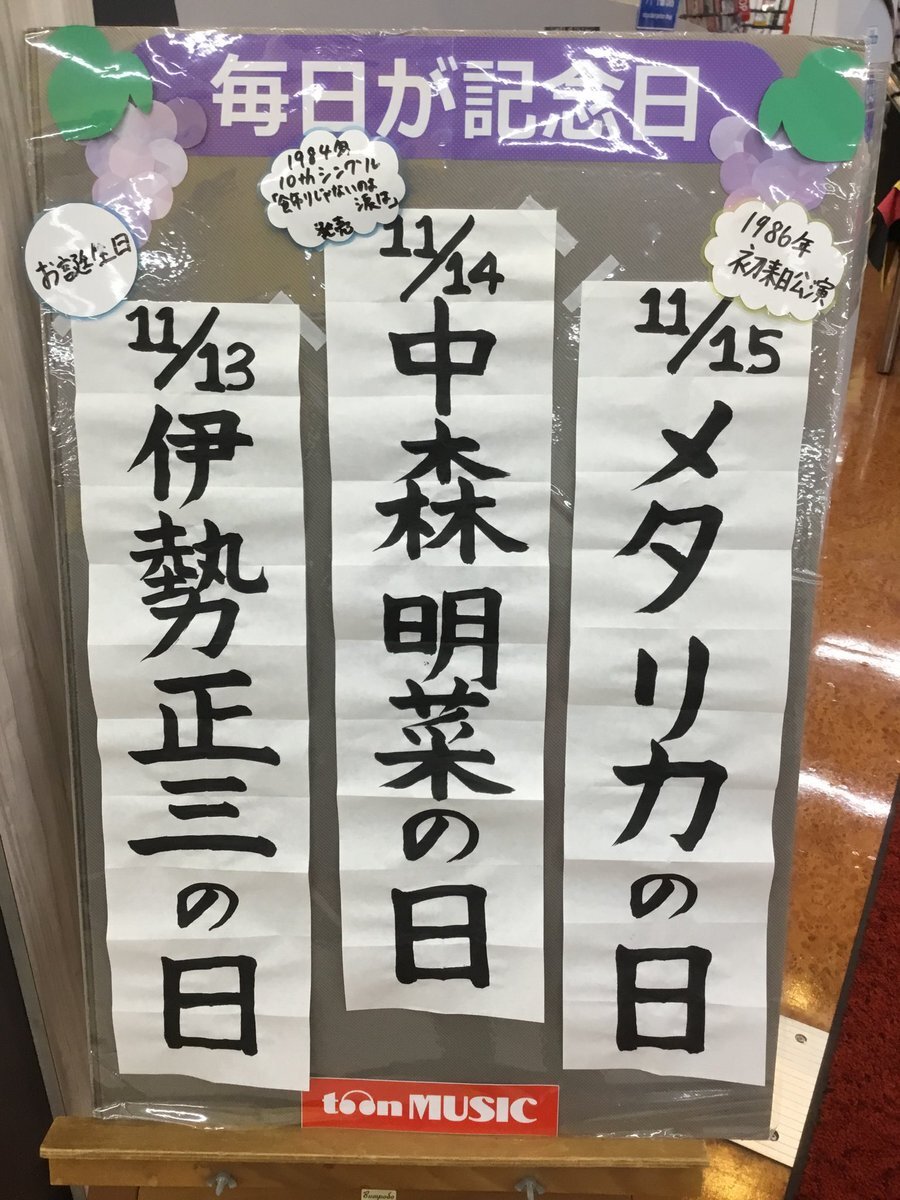 毎日が記念日
お誕生日
11/13
伊勢正三の日
1984年
10thシングル
「飾りじゃないのよ
涙は」
発売
11/14
中森明菜の日
1986年
初来日公演
11/15
メタリカの日
toon MUSIC
Bumpodo